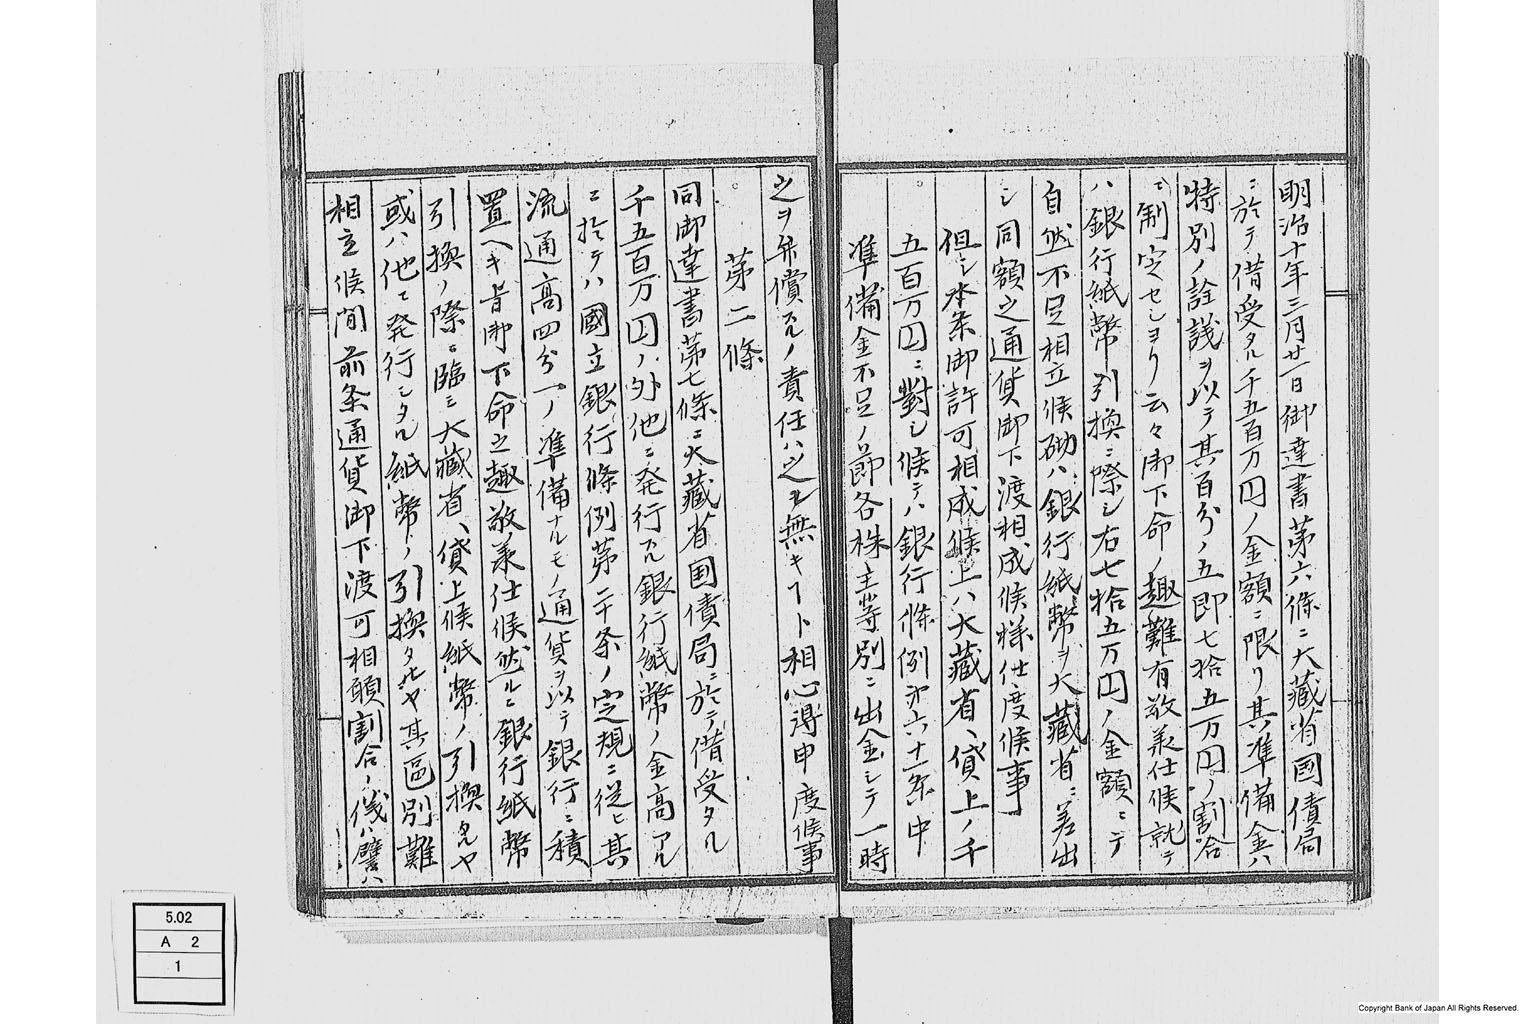 明治十年三月廿一日御達書第六條ニ大藏省國債局
ニ於テ借受タル千五百万円ノ金額ニ限リ其準備金ハ
特別ノ詮議ヲ以テ其百分ノ五即七拾五万円ノ割合
ニ制定セシヨリ云々御下命ノ趣難有敬承仕候就テ
ハ銀行紙幣引換ニ際シ右七拾五万円ノ金額ニテ
自然不足相立候砌ハ銀行紙幣ヲ大藏省ニ差出
シ同額之通貨御下渡相成候様仕度候事
但シ本条御許可相成候上ハ大藏省ヘ貸上ノ千
五百万円ニ對シ候テハ銀行條例第六十一条中
準備金不足ノ節各株主等別ニ出金シテ一時
之ヲ弁償スルノ責任ハ之レ無キヿト相心得申度候事
第二條
同御達書第七條ニ大藏省国債局ニ於テ借受タル
千五百万円ノ外他ニ発行スル銀行紙幣ノ金高アル
ニ於テハ國立銀行條例第二十条ノ定規ニ従ヒ其
流通高四分一ノ準備ナルモノ通貨ヲ以テ銀行ニ積
置ヘキ旨御下命之趣敬承仕候然ルニ銀行紙幣
引換ノ際ニ臨ミ大藏省ヘ貸上候紙幣ノ引換タルヤ
或ハ他ニ発行シタル紙幣ノ引換タルヤ其區別難
相立候間前条通貨御下渡可相願割合ノ儀ハ譬ハ
5.02
A 2
1
Copyright Bank of Japan All Rights Reserved.